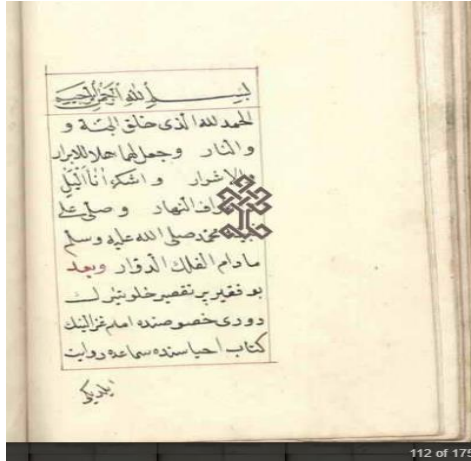 بسم الله الرحمن الرحيم
الحمد لله الذى خالق الجنة و
و النار وجعل لهما حلا للابرار
والاشرار و اشكره أناء الليل
النهار و صلى على
محمد صلى الله عليه وسلم
مادام الفلك الدوار وبعد
بو فقير پر تقصير خلوتيلرك
دورى خصوصنده امام غزالينك
كتاب احياسنده سماعده روايت
ايلديكى
112 of 175